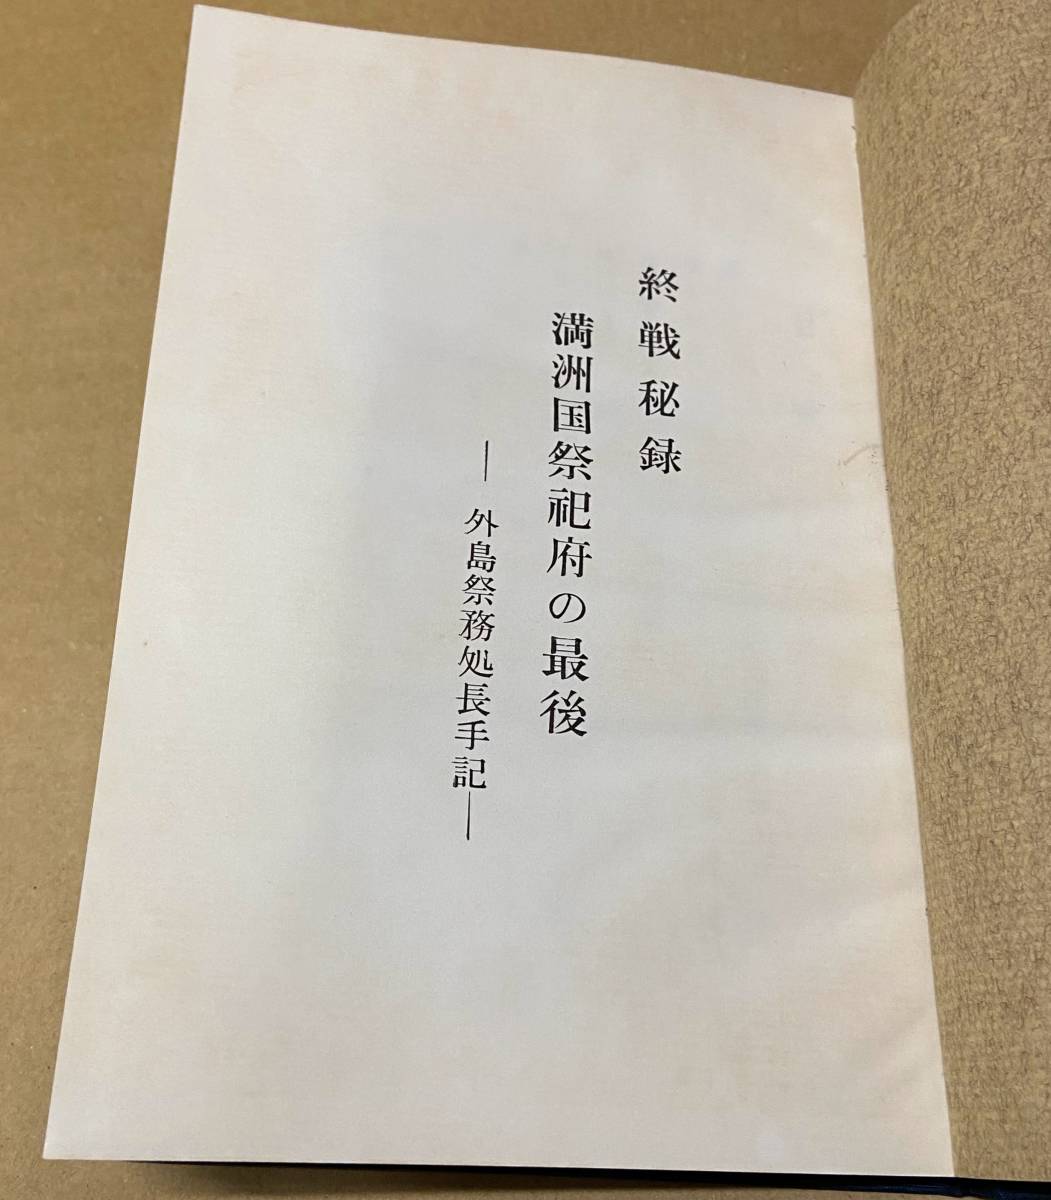 終戦秘録
満洲国祭祀府の最後
―外島祭務処長手記―